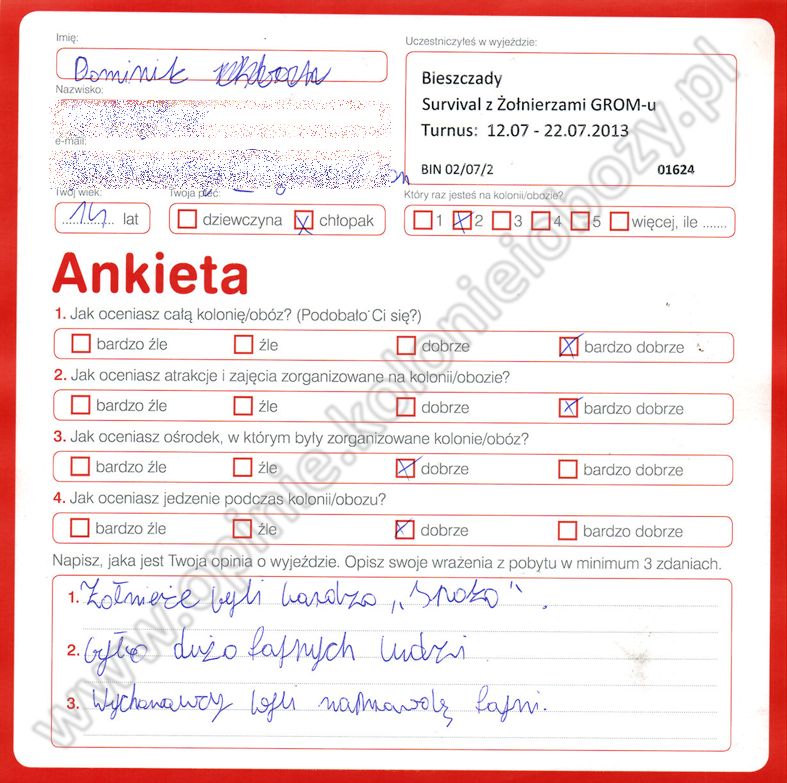 Imię:
Dominik
Nazwisko:
e-mail:
Twój wiek:
14 lat
Twoja płeć:
dziewczyna chłopak
Uczestniczyłeś w wyjeździe:
Bieszczady
Survival z Żołnierzami GROM-u
Turnus: 12.07 - 22.07.2013
BIN 02/07/2 01624
Który raz jesteś na kolonii/obozie?
1 2 3 4 5 więcej, ile .......
Ankieta
1. Jak oceniasz całą kolonię/obóz? (Podobało Ci się?)
bardzo źle źle dobrze bardzo dobrze
2. Jak oceniasz atrakcje i zajęcia zorganizowane na kolonii/obozie?
bardzo źle źle dobrze bardzo dobrze
3. Jak oceniasz ośrodek, w którym były zorganizowane kolonie/obóz?
bardzo źle źle dobrze bardzo dobrze
4. Jak oceniasz jedzenie podczas kolonii/obozu?
bardzo źle źle dobrze bardzo dobrze
Napisz, jaka jest Twoja opinia o wyjeździe. Opisz swoje wrażenia z pobytu w minimum 3 zdaniach.
1. Żołnieże byli bardzo „spoko".
2. było dużo fajnych ludzi
3. Wychowawcy byli naprawdę fajni.
www.opinie.kolonieiobozy.pl